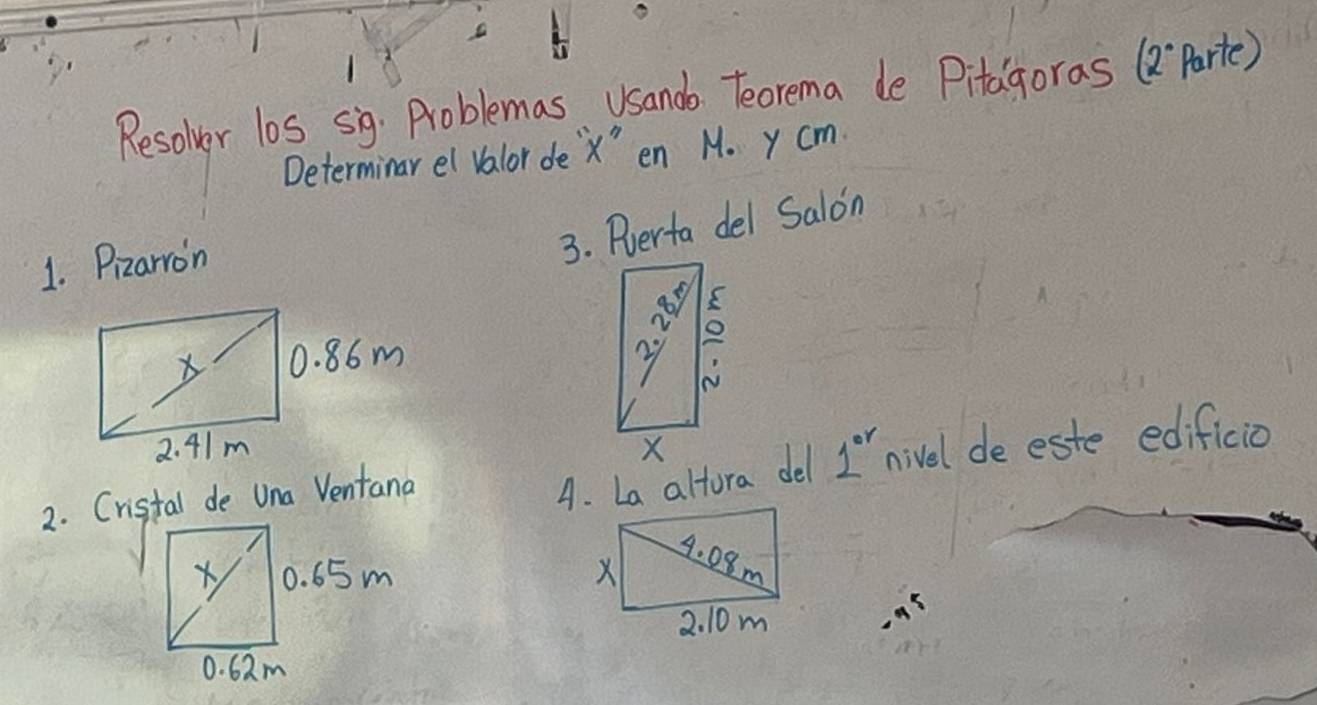 Resolver los sig. Problemas Usando Teorema de Pitágoras (2ª Parte)
Determinar el Valor de "X" en M. y cm.
1. Pizarrón
X
0.86 m
2.41 m
2. Cristal de Una Ventana
X
0.65 m
0.62 m
3. Puerta del Salón
2.28 m
2.10 m
X
4. La altura del 1er nivel de este edificio
X
4.08 m
2.10 m